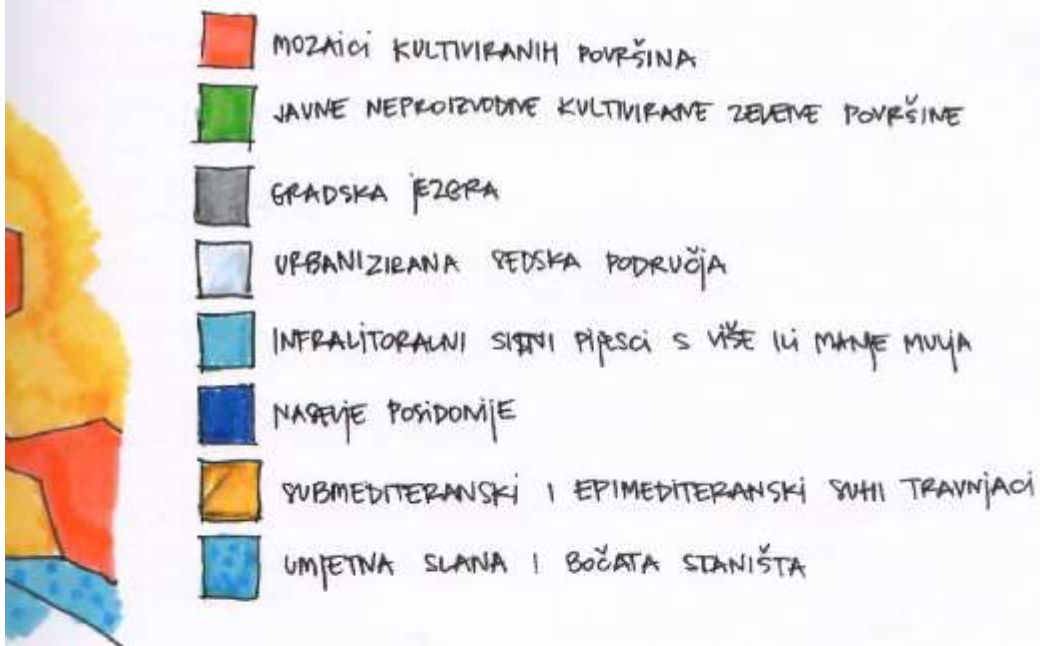 MOZAICI KULTIVIRANIH POVRŠINA
JAVNE NEPROIZVODNE KULTIVIRANE ZELENE POVRŠINE
GRADSKA JEZERA
URBANIZIRANA SEOSKA PODRUČJA
INFRALITORALNI SITNI PIJESCI S VIŠE ILI MANJE MULJA
NASELJE POSIDONIJE
SUBMEDITERANSKI I EPIMEDITERANSKI SUHI TRAVNJACI
UMJETNA SLANA I BOČATA STANIŠTA